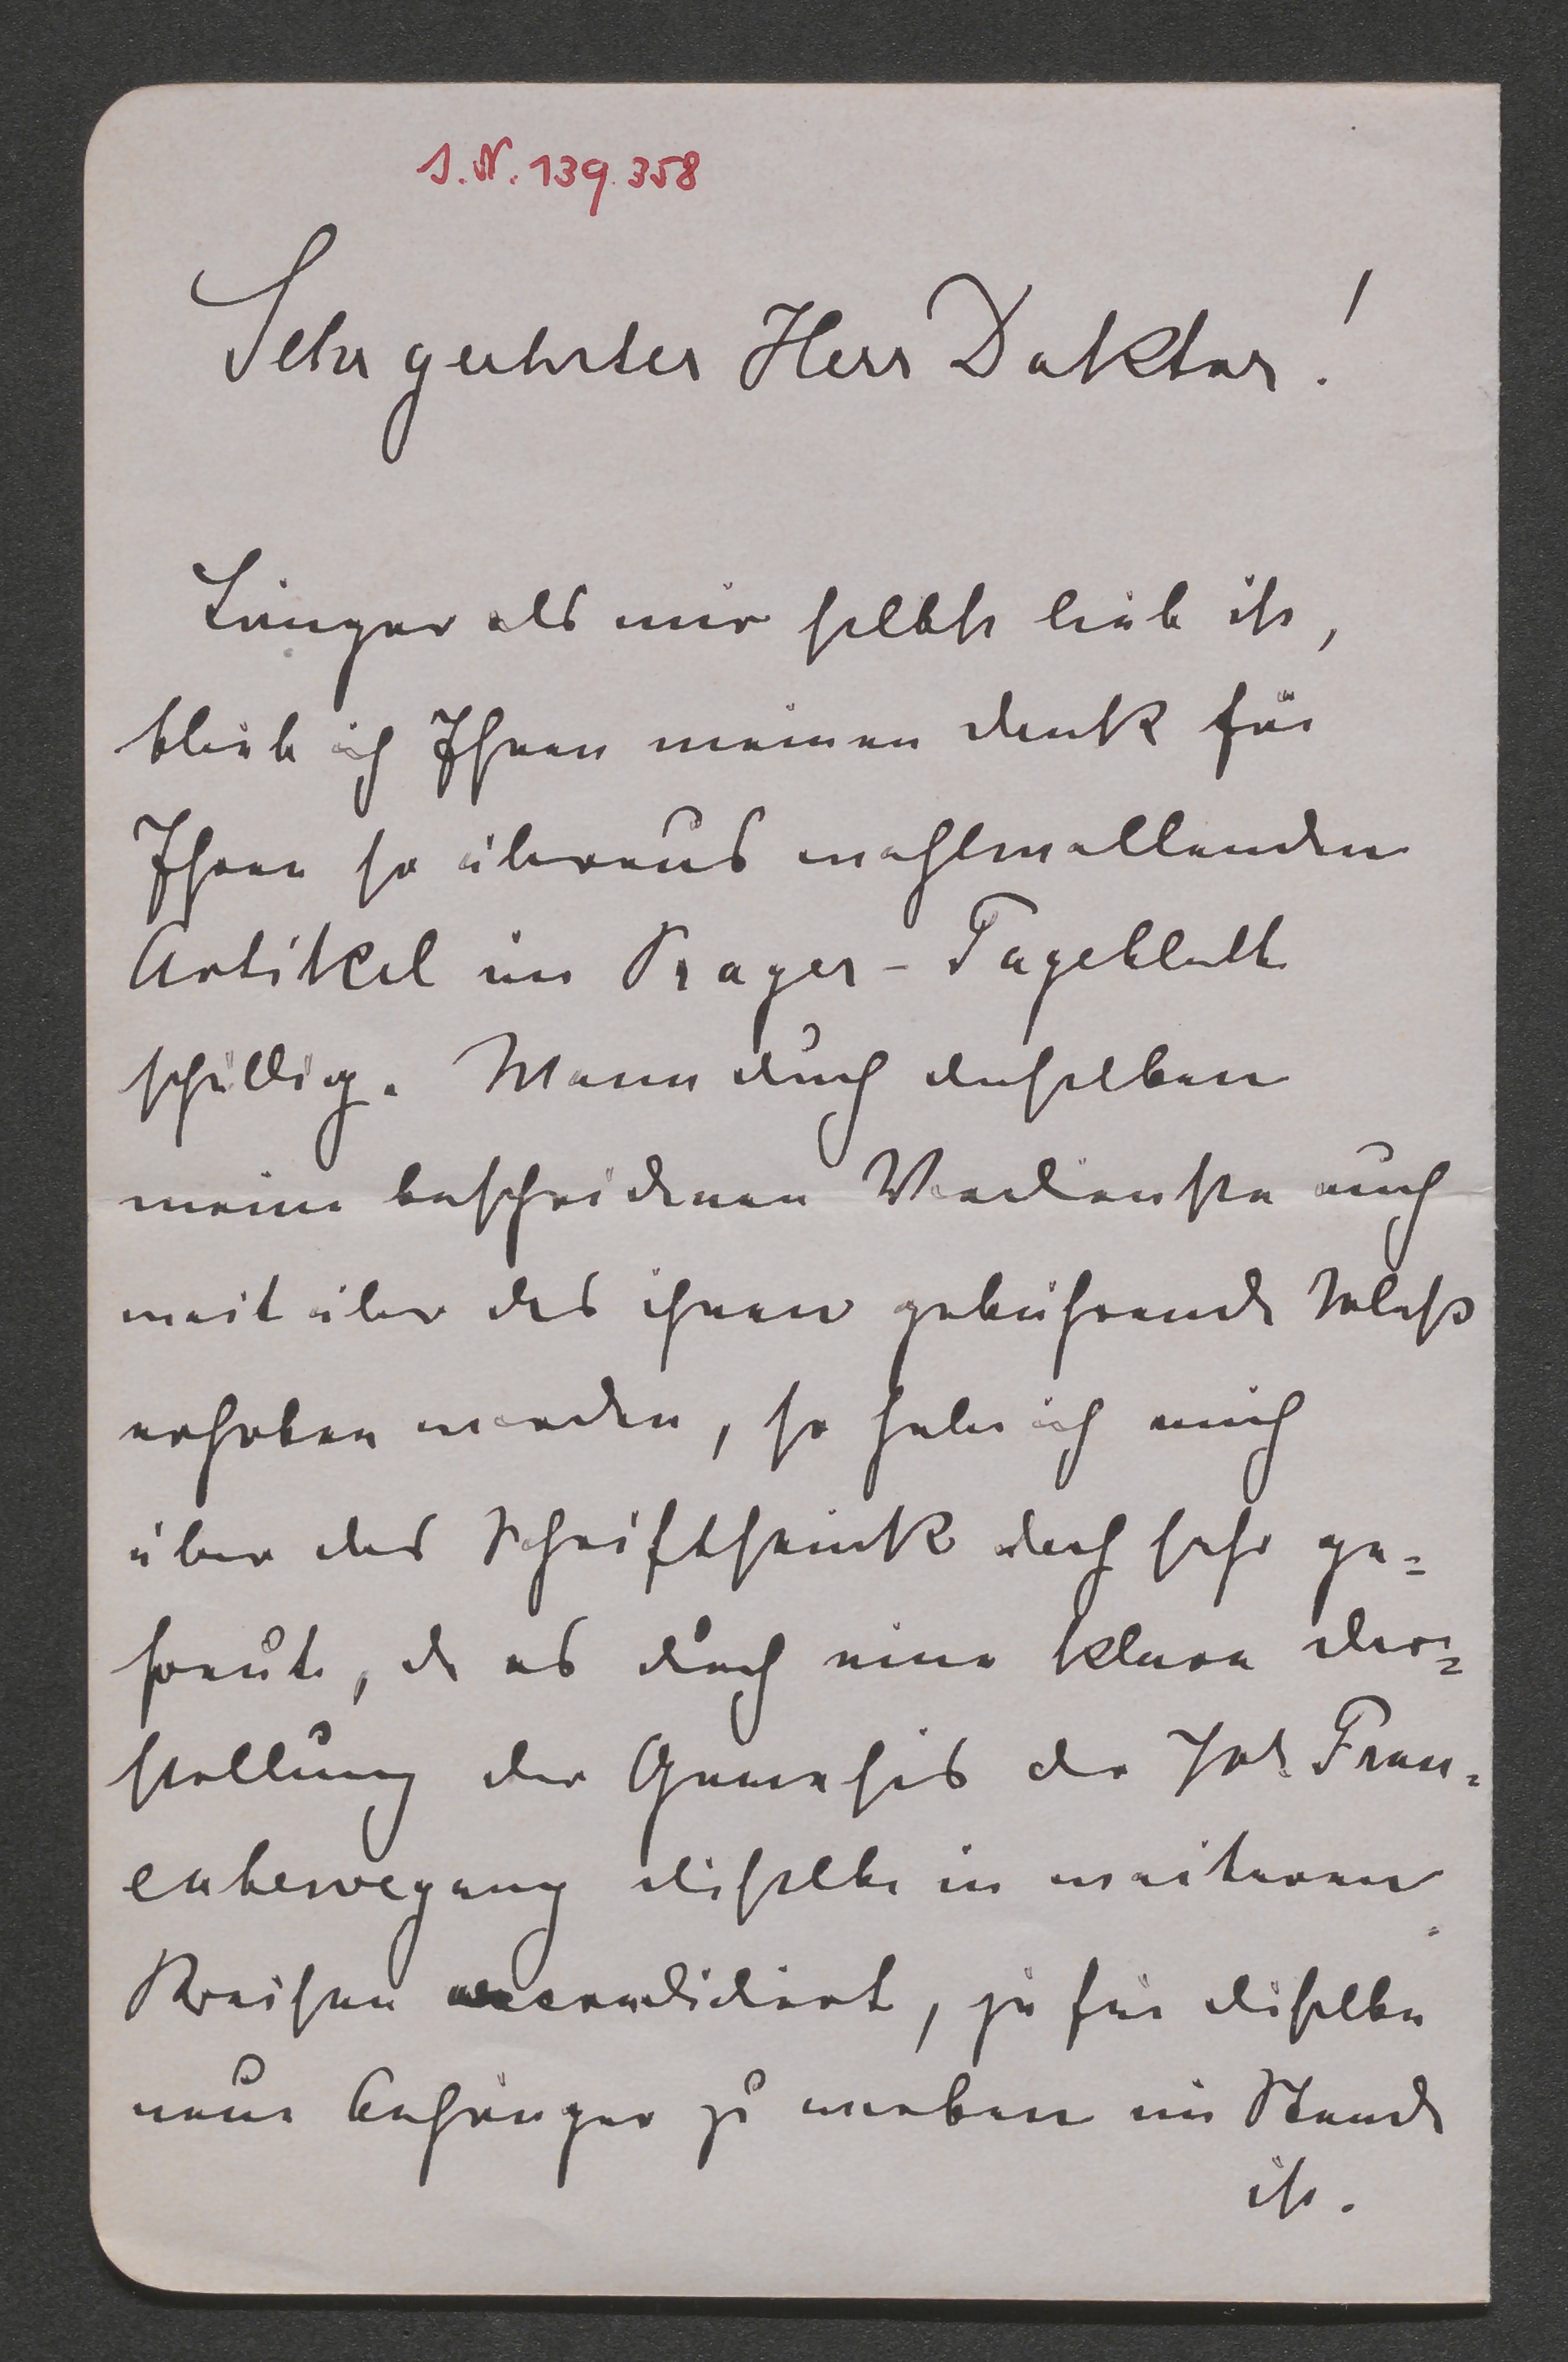 I.N. 139.358
Sehr geehrter Herr Doktor!
Länger als mir selbst lieb ist,
blieb ich Ihnen meinen Dank für
Ihren so überaus wohlwollenden
Artikel im Prager-Tageblatt
schuldig. Wenn durch denselben
meine bescheidenen Verdienste auch
weit über das ihnen gebührende Maß
erhoben werden, so habe ich mich
über das Schriftstück doch sehr ge=
freut, da es durch eine klare Dar=
stellung der Genesis der Frau=
enbewegung dieselbe in weiteren
Kreisen accreditiert, ja für dieselbe
neue Anhänger zu werben im Stande
ist.